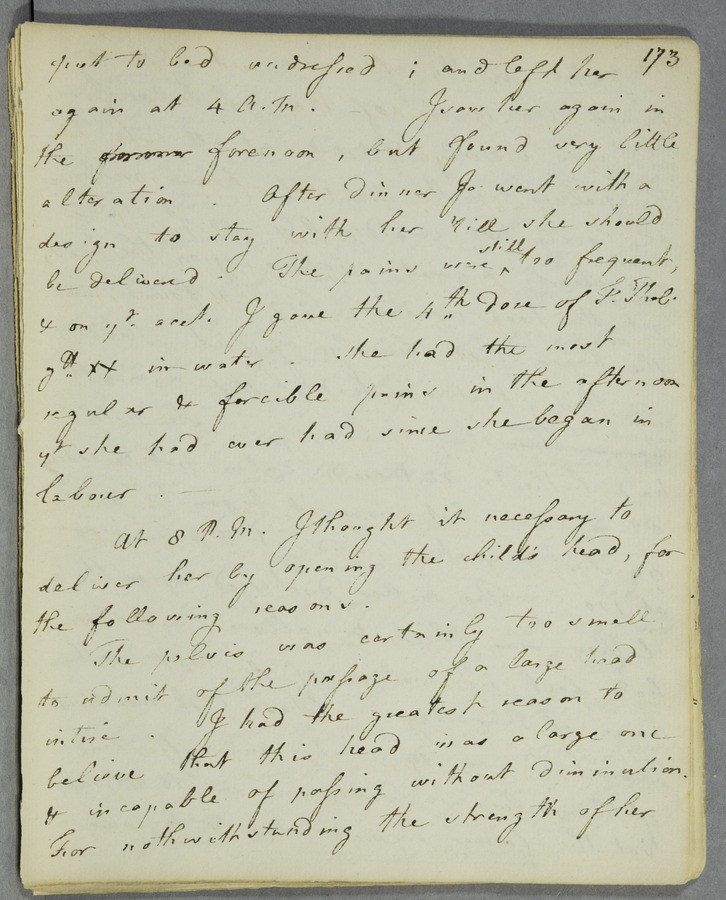 173
put to bed undressed ; and left her
again at 4 A.M. I saw her again in
the former forenoon, but found very little
alteration. After dinner I went with a
design to stay with her till she should
be delivered. The pains were still too frequent,
& on yt. acct. I gave the 4th dose of T. Theb.
gtt xx in water. She had the most
regular & forcible pains in the afternoon
yt she had ever had since she began in
labour. —
At 8 P.M. I thought it necessary to
deliver her by opening the child's head, for
the following reasons.
The pelvis was certainly too small
to admit of the passage of a large head
intire. I had the greatest reason to
believe that this head was a large one
& incapable of passing without diminution.
For nothwithstanding the strength of her